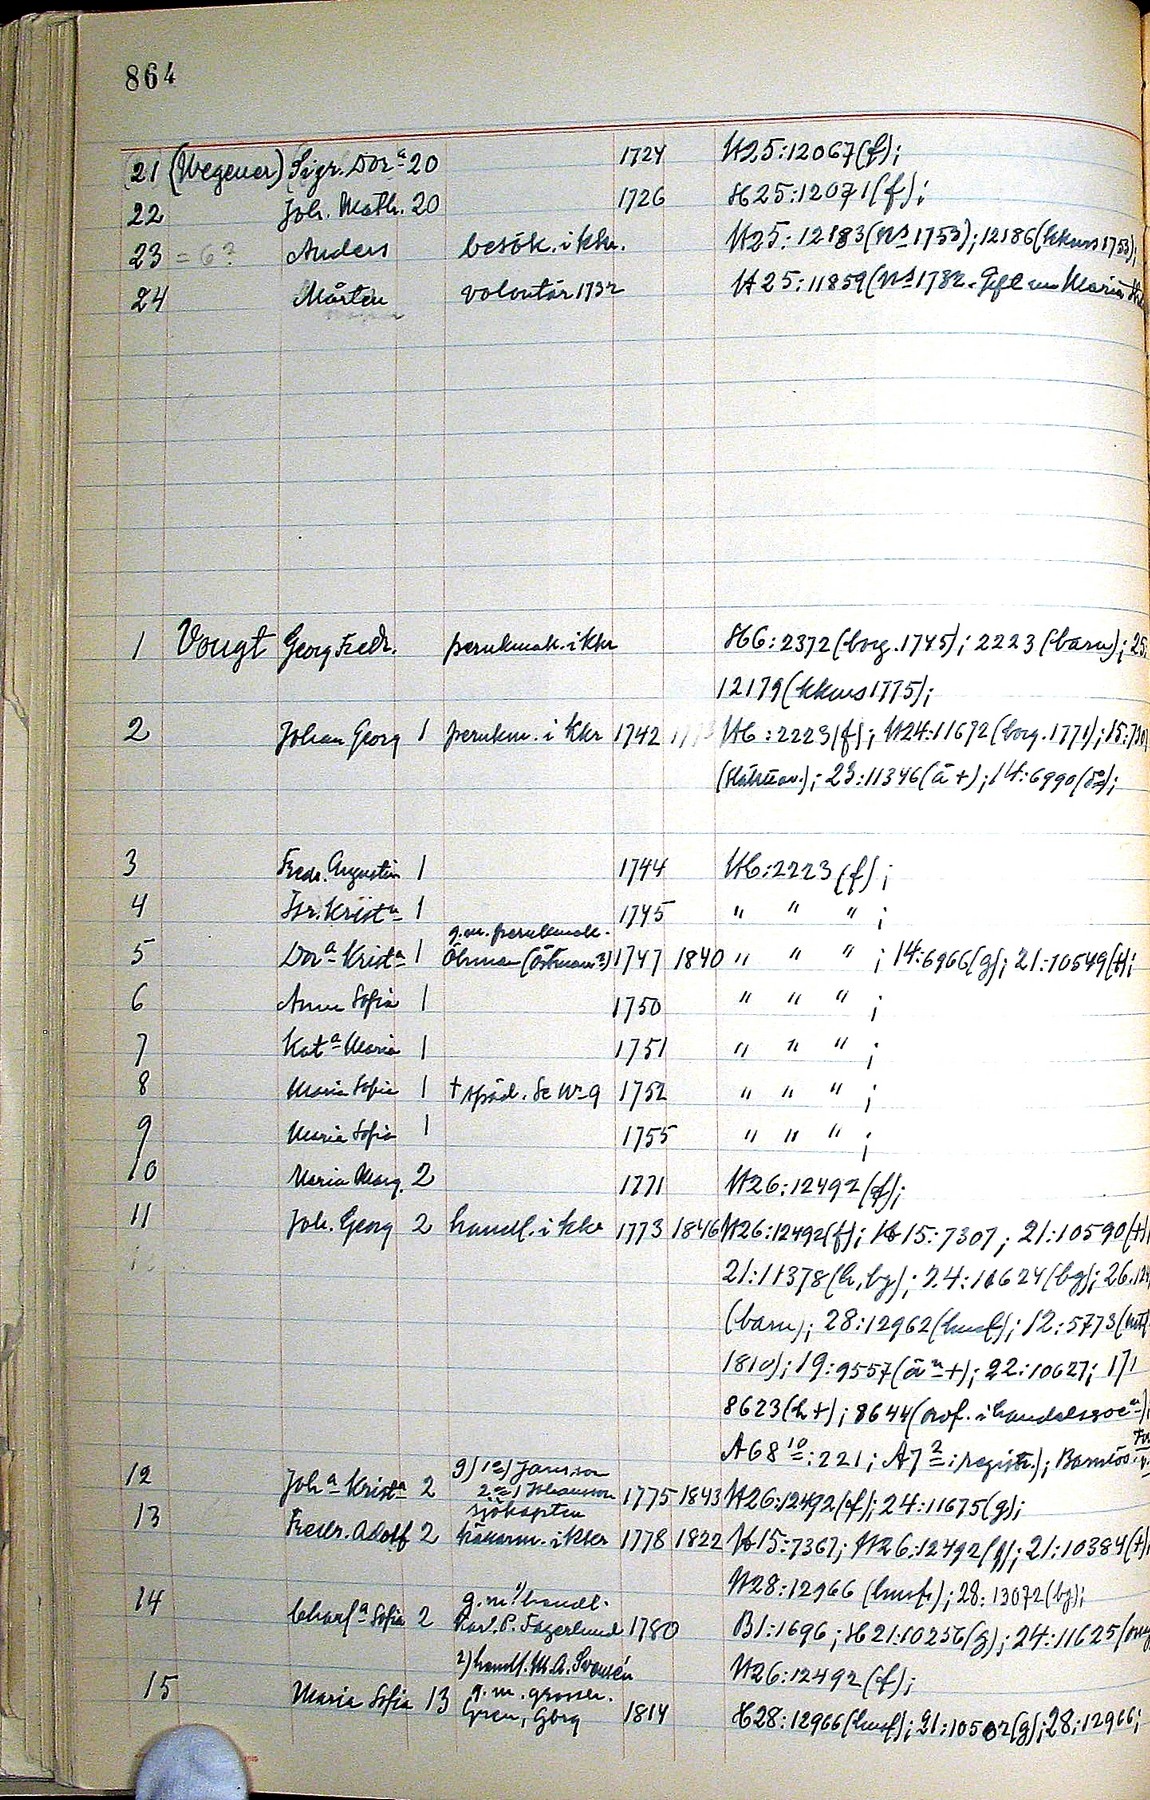 864
21 (Wegener) Sigr. Dorª 20 1724 H25:12067(f);
22 Joh. Math. 20 1726 H25:12071(f);
23 = 6? Anders besök. i kkr. H25:12183(Ns 1753); 12186(kkurs 1753);
24 Mårten volontär 1732 H25:11859(Ns 1782. Gift m Maria
1 Vougt Georg Fredr. perukmak. i kkr H6:2372(borg. 1745); 2223(barn); 25:
12179(kkurs 1775);
2 Johan Georg 1 perukm. i Kkr 1742 H6:2223(f); H24:11672(borg. 1771); 15:730
23:11346(ä+); 14:6990
3 Fredr. Augustin 1 1744 H6:2223(f);
4 Kristª 1 1745 " " " ;
g.m. perukmak.
5 Dorª Kristª 1 Öhman (Östman?) 1747 1840 " " " ; 14:6966(g); 21:10549(+);
6 Anna Sofia 1 1750 " " " ;
7 Katª Maria 1 1751 " " " ;
8 Maria Sofia 1 + späd. Se Nº 9 1752 " " " ;
9 Maria Sofia 1 1755 " " " ;
10 Maria Marg. 2 1771 H26:12492(f);
11 Joh. Georg 2 handl. i kkr 1773 1846 H26:12492(f); H15:7307; 21:10590(+)
21:11378(h, bg); 24:11624(bg); 26.124
(barn); 28:12962(husf); 12:5773
1810); 19:9557(äⁿ+); 22:10627; 171
8623(h+); 8644(ord. i handelssocⁿ);
A68 10:221; A7 2:registr.);
g) 1º) Jansson
12 Johª Kristª 2 2º) Johansson 1775 1843 H26:12492(f); 24:11675(g);
sjökapten
13 Fredr. Adolf 2 i kkr 1778 1822 H15:7367; H26:12492(f); 21:10384(+)
H28:12966(husf.); 28:13072(bg);
g.m. 1) handl.
14 Charlª Sofia 2 Karl. P. Fagerlund 1780 B1:1696; H21:10256(g); 24:11625
2) handl. M. A. Svensén H26:12492(f);
g.m. grossh.
15 Maria Sofia 13 Gren, Gbrg 1814 H28:12966(husf); 21:10502(g); 28:12966;